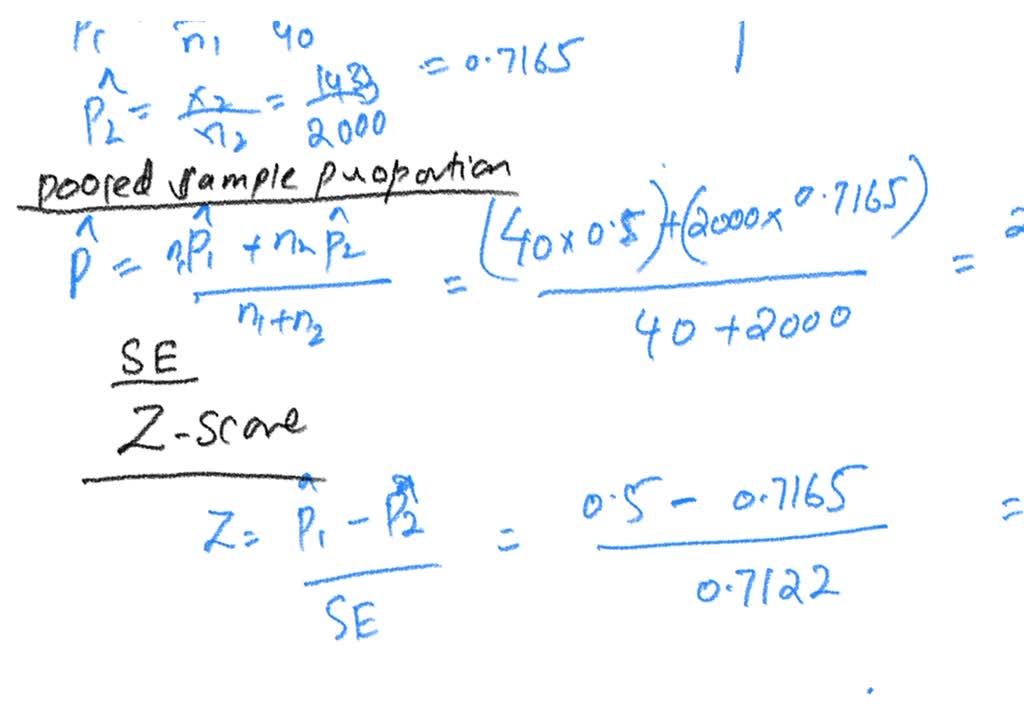 n1 40
p̂2 = x2/n2 = 1433/2000 = 0.7165
pooled sample puoportion
p̂ = n1p̂1 + n2 p̂2 / n1+n2 = (40 x 0.5)+(2000 x 0.7165) / 40 + 2000 =
SE
Z-score
Z = p̂1 - p̂2 / SE = 0.5 - 0.7165 / 0.7122 =